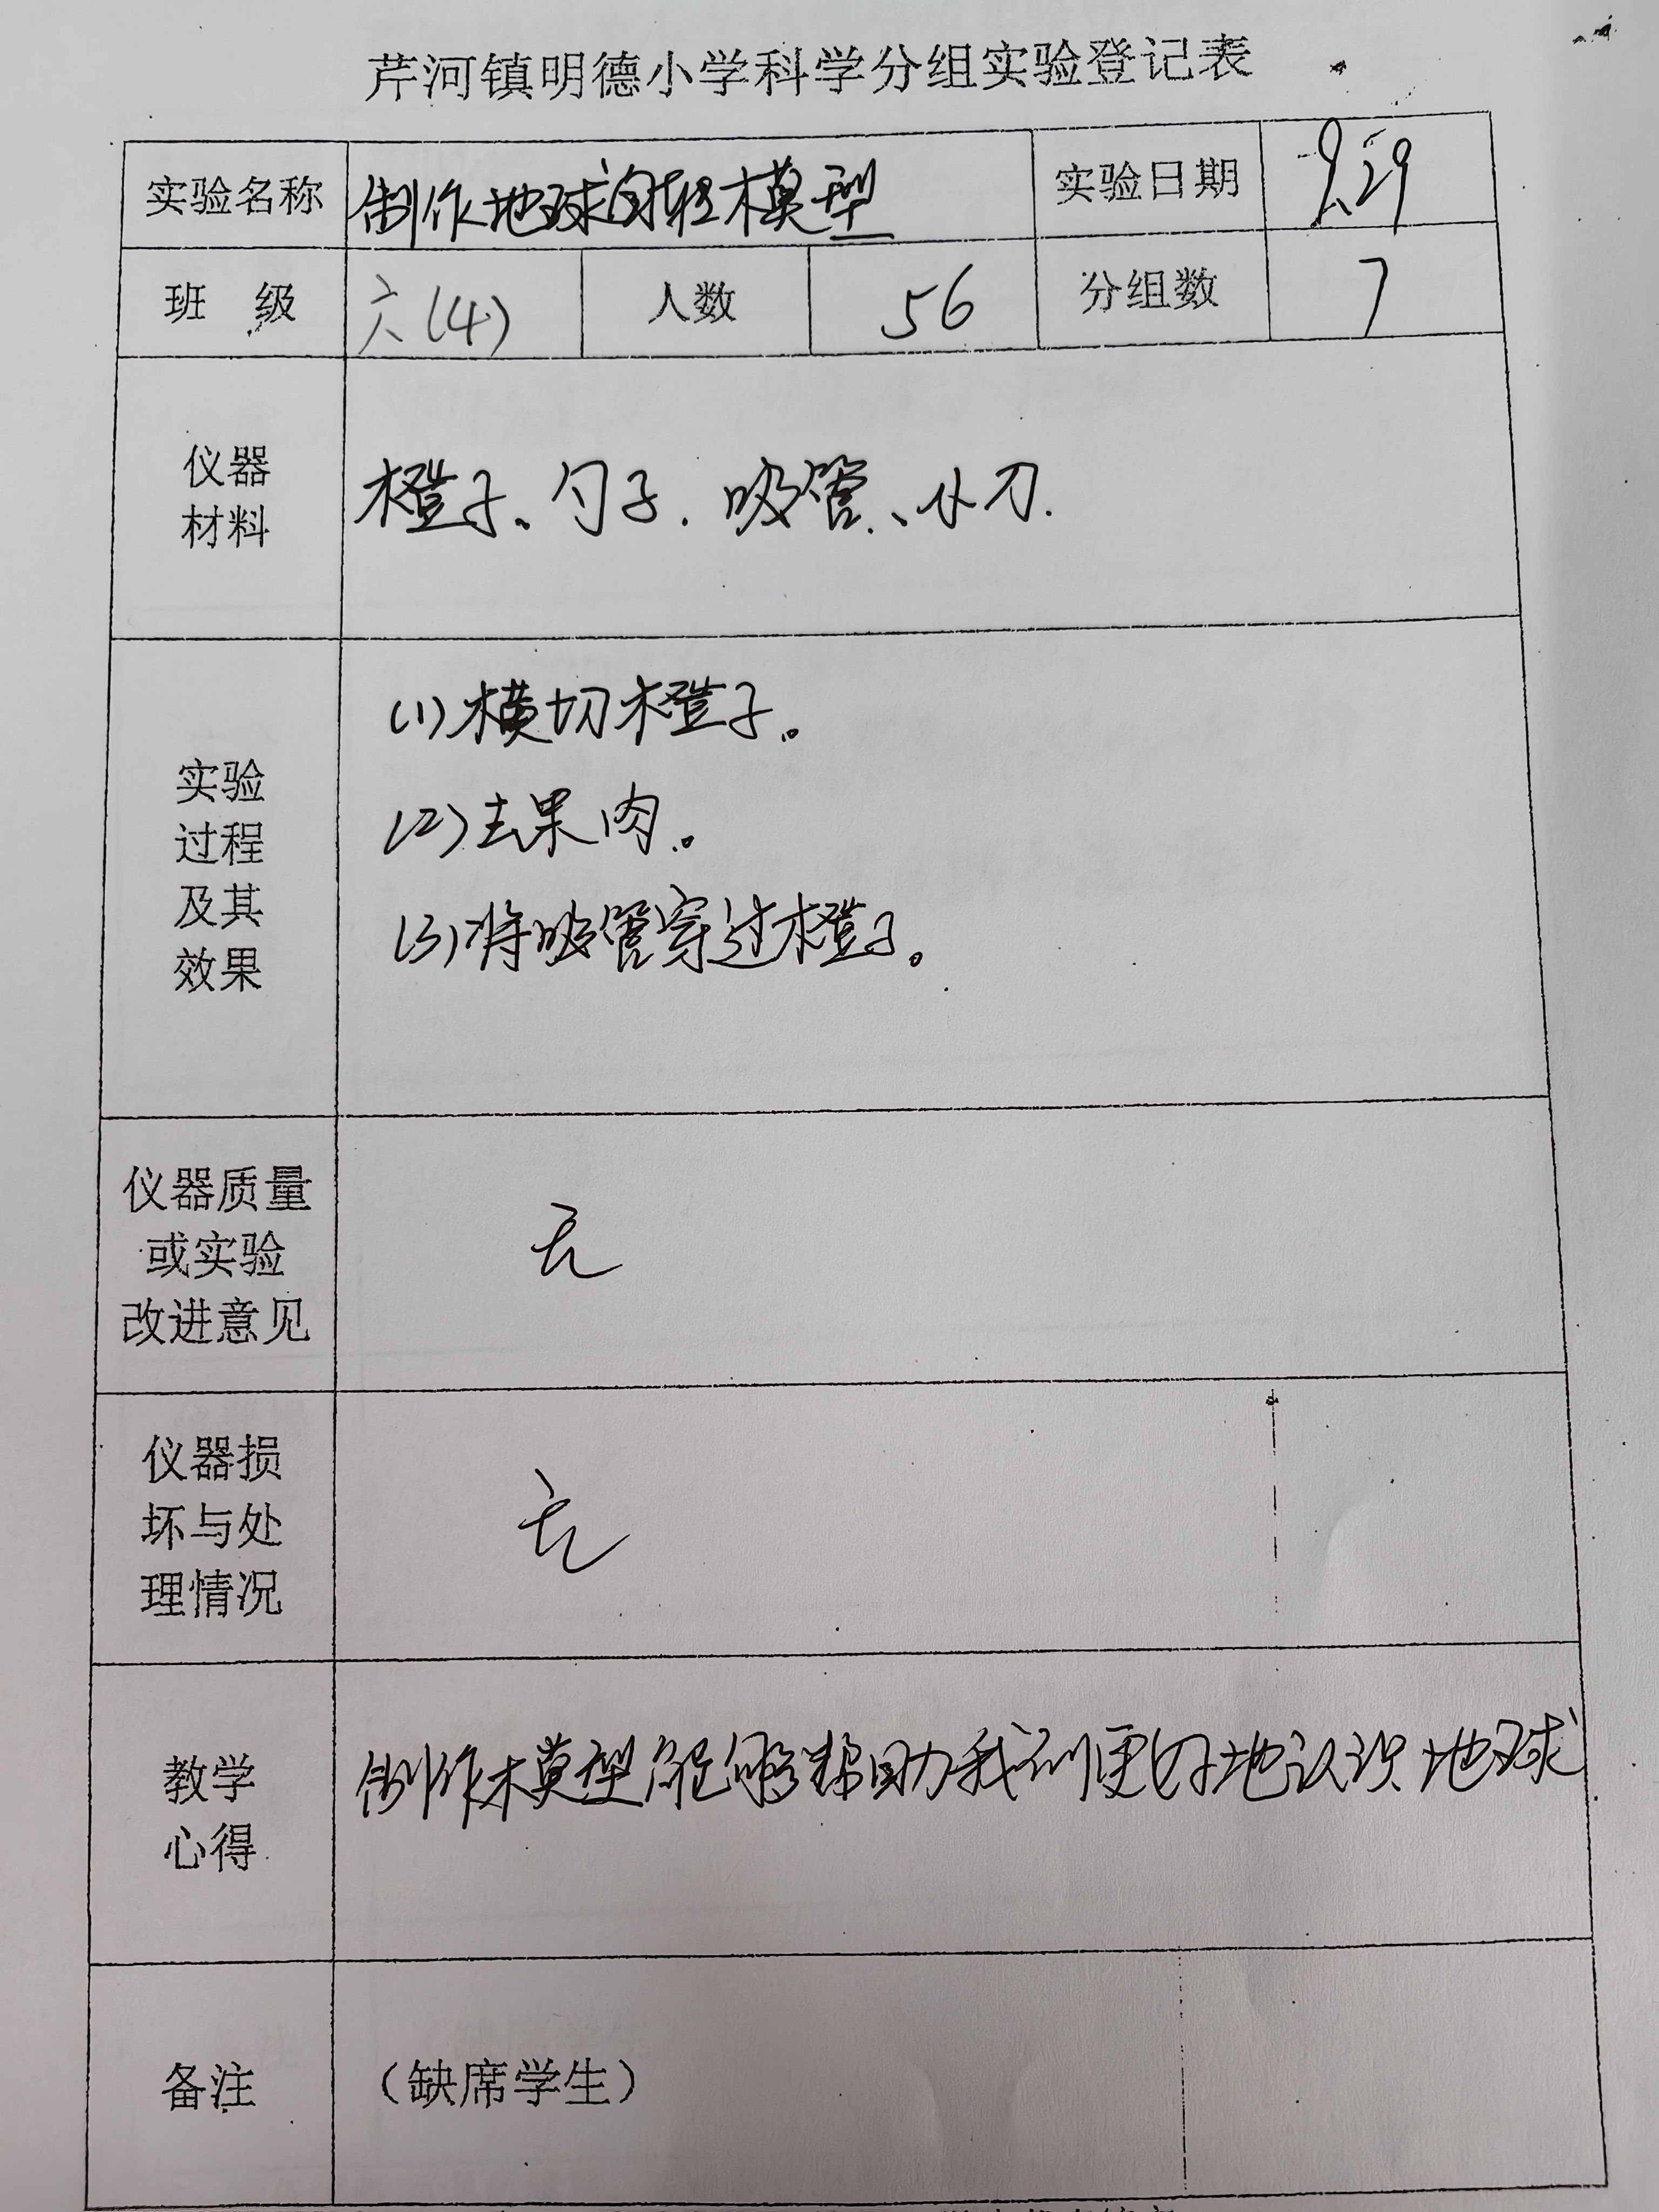 芹河镇明德小学科学分组实验登记表
实验名称 制作地球自转模型 实验日期 9.29
班 级 六(4) 人数 56 分组数 7
仪器
材料
橙子、勺子、吸管、小刀.
实验
过程
及其
效果
(1)横切橙子。
(2)去果肉。
(3)将吸管穿过橙子。
仪器质量
或实验
改进意见
无
仪器损
坏与处
理情况
无
教学
心得
制作模型能够帮助我们更好地认识地球
备注 (缺席学生)